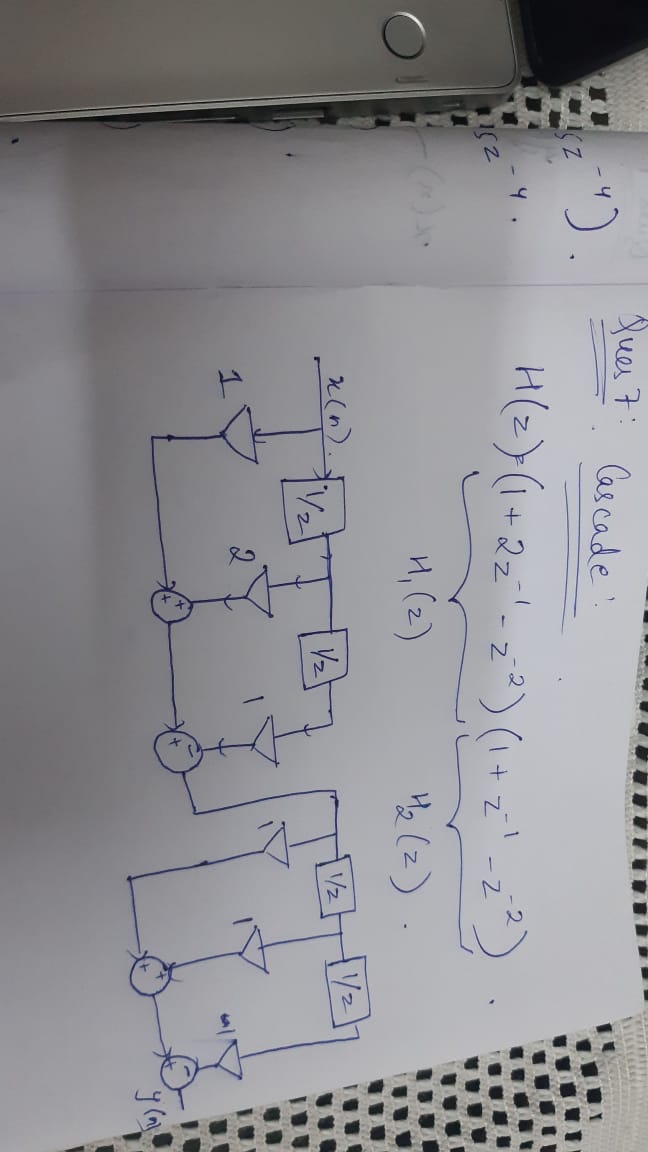 ςz⁻⁴).
ςz⁻⁴.
Ques 7: Cascade:
H(z)=(1+2z⁻¹-z⁻²)(1+z⁻¹-z⁻²)
H₁(z) H₂(z).
x(n).
1/z 1/z 1/z 1/z
1 2 1 1 1
+ + + - + + + -
y(n)